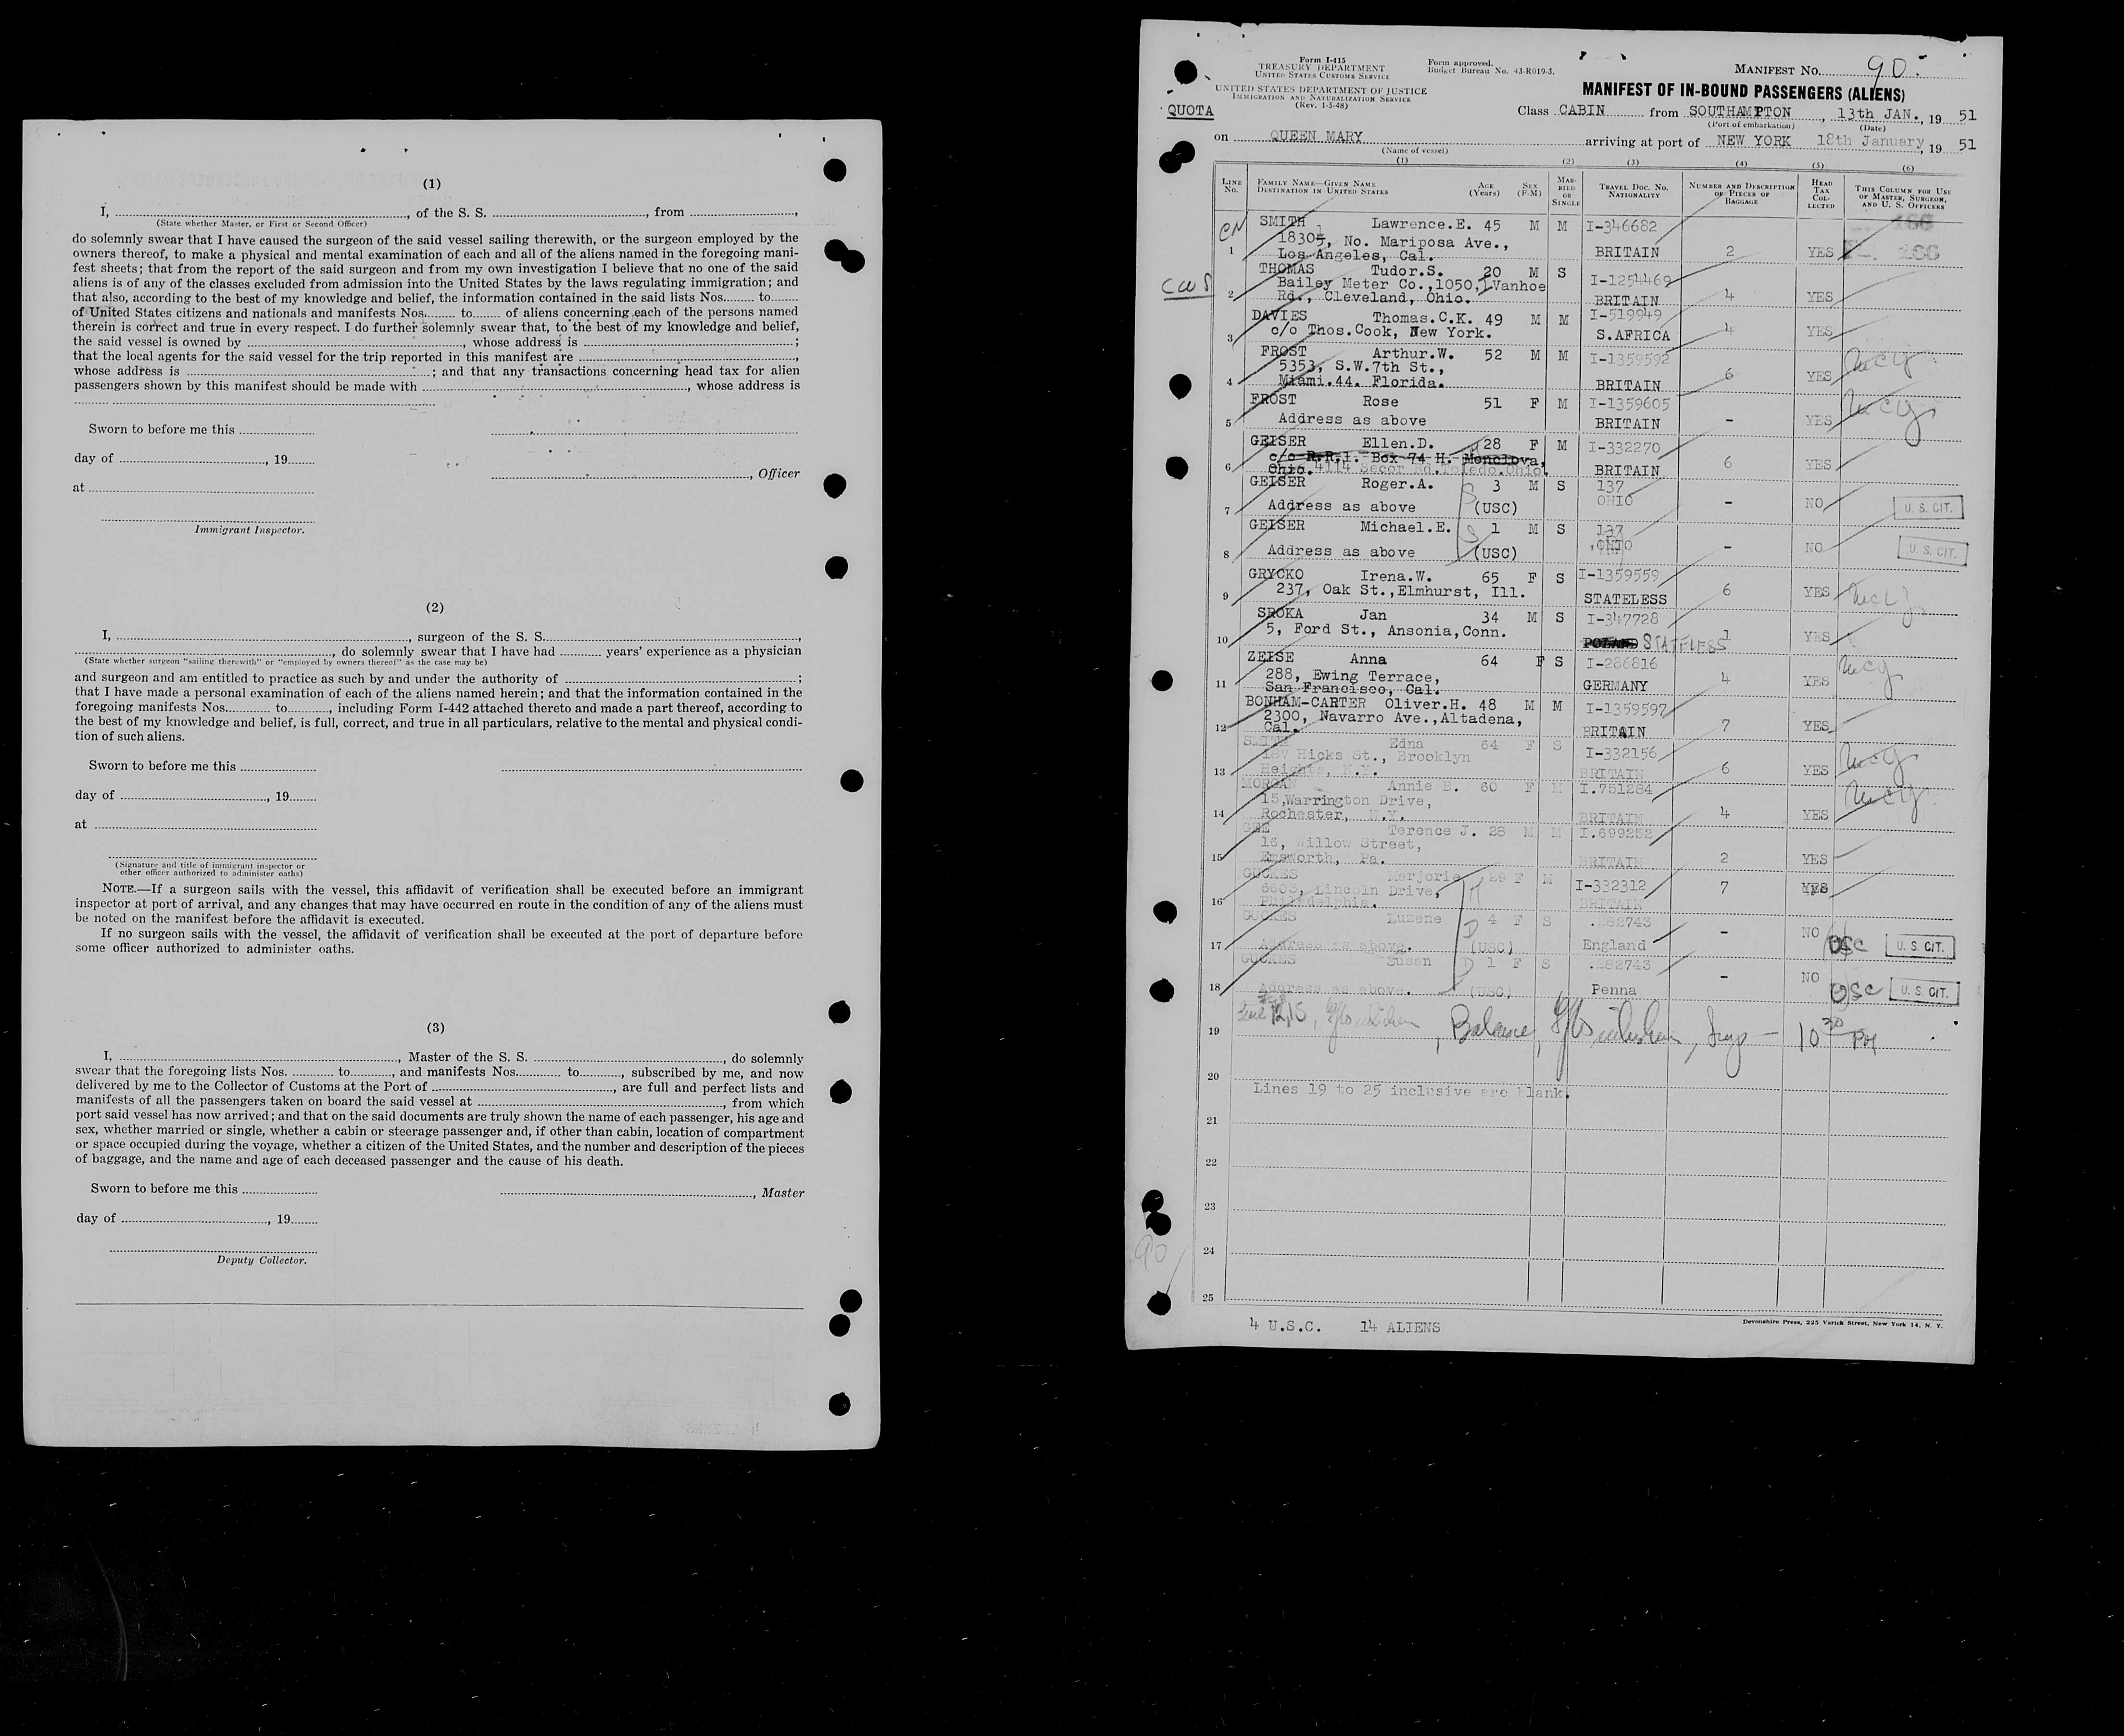 (1)
I, , of the S. S. , from ,
(State whether Master, or First or Second Officer)
do solemnly swear that I have caused the surgeon of the said vessel sailing therewith, or the surgeon employed by the
owners thereof, to make a physical and mental examination of each and all of the aliens named in the foregoing mani-
fest sheets; that from the report of the said surgeon and from my own investigation I believe that no one of the said
aliens is of any of the classes excluded from admission into the United States by the laws regulating immigration; and
that also, according to the best of my knowledge and belief, the information contained in the said lists Nos. to
of United States citizens and nationals and manifests Nos. to of aliens concerning each of the persons named
therein is correct and true in every respect. I do further solemnly swear that, to the best of my knowledge and belief,
the said vessel is owned by , whose address is ;
that the local agents for the said vessel for the trip reported in this manifest are ,
whose address is ; and that any transactions concerning head tax for alien
passengers shown by this manifest should be made with , whose address is
Sworn to before me this
day of , 19
, Officer
at
Immigrant Inspector.
(2)
I, , surgeon of the S. S. ,
, do solemnly swear that I have had years' experience as a physician
(State whether surgeon "sailing therewith" or "employed by owners thereof" as the case may be)
and surgeon and am entitled to practice as such by and under the authority of ;
that I have made a personal examination of each of the aliens named herein; and that the information contained in the
foregoing manifests Nos. to , including Form I-442 attached thereto and made a part thereof, according to
the best of my knowledge and belief, is full, correct, and true in all particulars, relative to the mental and physical condi-
tion of such aliens.
Sworn to before me this
day of , 19
at
(Signature and title of immigrant inspector or
other officer authorized to administer oaths)
NOTE.—If a surgeon sails with the vessel, this affidavit of verification shall be executed before an immigrant
inspector at port of arrival, and any changes that may have occurred en route in the condition of any of the aliens must
be noted on the manifest before the affidavit is executed.
If no surgeon sails with the vessel, the affidavit of verification shall be executed at the port of departure before
some officer authorized to administer oaths.
(3)
I, , Master of the S. S. , do solemnly
swear that the foregoing lists Nos. to , and manifests Nos. to , subscribed by me, and now
delivered by me to the Collector of Customs at the Port of , are full and perfect lists and
manifests of all the passengers taken on board the said vessel at , from which
port said vessel has now arrived; and that on the said documents are truly shown the name of each passenger, his age and
sex, whether married or single, whether a cabin or steerage passenger and, if other than cabin, location of compartment
or space occupied during the voyage, whether a citizen of the United States, and the number and description of the pieces
of baggage, and the name and age of each deceased passenger and the cause of his death.
Sworn to before me this
, Master
day of , 19
Deputy Collector.
Form I-415
TREASURY DEPARTMENT
UNITED STATES CUSTOMS SERVICE
Form approved.
Budget Bureau No. 43-R019-3.
MANIFEST No. 90.
UNITED STATES DEPARTMENT OF JUSTICE
IMMIGRATION AND NATURALIZATION SERVICE
(Rev. 1-5-48)
MANIFEST OF IN-BOUND PASSENGERS (ALIENS)
QUOTA
Class CABIN from SOUTHAMPTON , 13th JAN., 19 51
(Port of embarkation) (Date)
on QUEEN MARY arriving at port of NEW YORK 18th January, 19 51
(Name of vessel)
(1) (2) (3) (4) (5) (6)
LINE No. FAMILY NAME—GIVEN NAME DESTINATION IN UNITED STATES AGE (Years) SEX (F-M) MARRIED OR SINGLE TRAVEL DOC. NO. NATIONALITY NUMBER AND DESCRIPTION OF PIECES OF BAGGAGE HEAD TAX COLLECTED THIS COLUMN FOR USE OF MASTER, SURGEON, AND U. S. OFFICERS
SMITH Lawrence.E. 45 M M I-346682
18305, No. Mariposa Ave.,
1 Los Angeles, Cal. BRITAIN 2 YES
THOMAS Tudor.S. 20 M S I-1254469
Bailey Meter Co.,1050,IVanhoe
2 Rd., Cleveland, Ohio. BRITAIN 4 YES
DAVIES Thomas.C.K. 49 M M I-519949
3 c/o Thos.Cook, New York. S.AFRICA 4 YES
FROST Arthur.W. 52 M M I-1359592
5353, S.W.7th St.,
4 Miami.44. Florida. BRITAIN 6 YES
FROST Rose 51 F M I-1359605
5 Address as above BRITAIN - YES
GEISER Ellen.D. 28 F M I-332270
c/o R.R.1. Box 74 H. Monclova,
6 Ohio. 4114 Secor Rd.Toledo.Ohio. BRITAIN 6 YES
GEISER Roger.A. 3 M S 137
OHIO
7 Address as above (USC) - NO U. S. CIT.
GEISER Michael.E. 1 M S 137
8 Address as above (USC) OHIO - NO U. S. CIT.
GRYCKO Irena.W. 65 F S I-1359559
9 237, Oak St.,Elmhurst, Ill. STATELESS 6 YES
SROKA Jan 34 M S I-347728
10 5, Ford St., Ansonia,Conn. POLAND STATELESS 1 YES
ZEISE Anna 64 F S I-286816
288, Ewing Terrace,
11 San Francisco, Cal. GERMANY 4 YES
BONHAM-CARTER Oliver.H. 48 M M I-1359597
2300, Navarro Ave.,Altadena,
12 Cal. BRITAIN 7 YES
SMITH Edna 64 F S I-332156
187 Hicks St., Brooklyn
13 Heights, N.Y. BRITAIN 6 YES
MORGAN Annie B. 60 F M I.751284
15,Warrington Drive,
14 Rochester, N.Y. BRITAIN 4 YES
GEE Terence J. 28 M M I.699252
16, Willow Street,
15 Emsworth, Pa. BRITAIN 2 YES
GUCKES Marjorie 29 F M I-332312
6603, Lincoln Drive, 7 YES
16 Philadelphia. BRITAIN
GUCKES Luzene 4 F S .282743
17 Address as above. (USC) England - NO USC U. S. CIT.
GUCKES Susan 1 F S .282743
18 Address as above. (USC) Penna - NO USC U. S. CIT.
19 Balance 10 30 PM
20
Lines 19 to 25 inclusive are blank.
21
22
23
24
25
90
4 U.S.C. 14 ALIENS
Devonshire Press, 225 Varick Street, New York 14, N. Y.